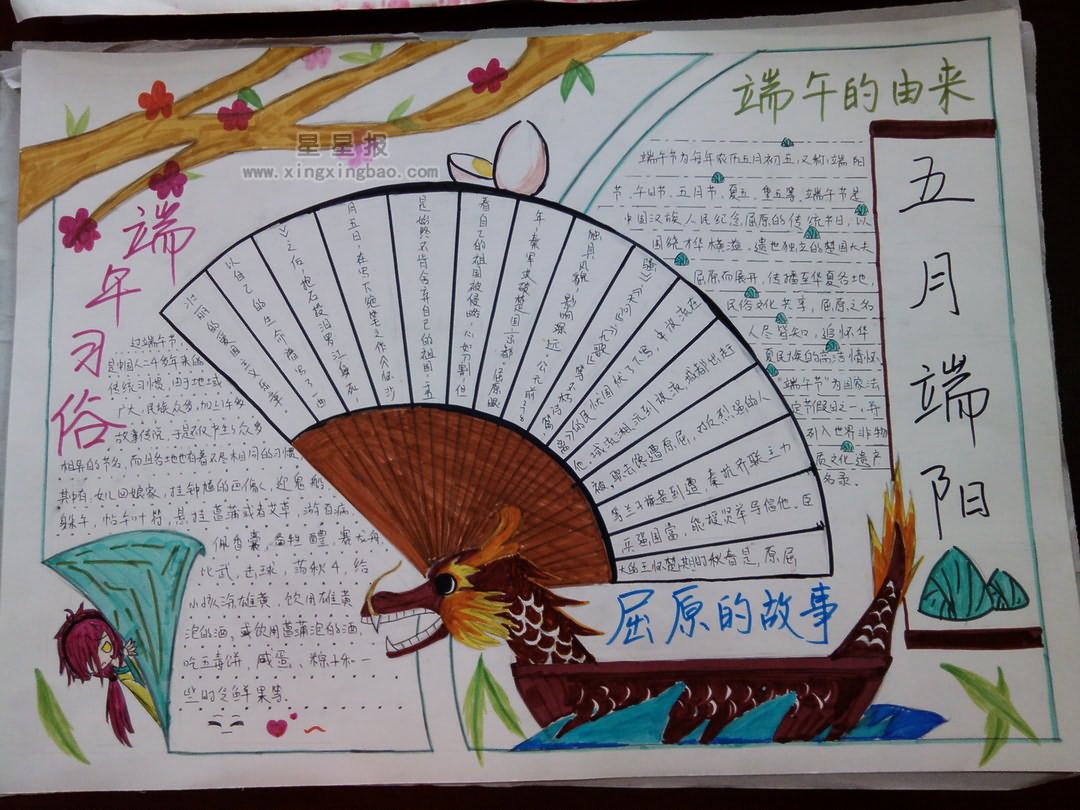 端午的由来
五月端阳
星星报
www.xingxingbao.com
端午习俗
端午节为每年农历五月初五,又称端阳
节、午日节、五月节、夏五、重五等。端午节是
中国汉族人民纪念屈原的传统节日,以
围绕才华横溢、遗世独立的楚国大夫
屈原而展开,传播至华夏各地,
民俗文化共享,屈原之名
人尽皆知,追怀华
夏民族的高洁情怀
"端午节"为国家法
定节假日之一,并
列入世界非物
质文化遗产
名录。
过端午节,
是中国人二千多年来的
传统习惯,由于地域
广大,民族众多,加上许多
故事传说,于是不仅产生了众多
相异的节名,而且各地也有着不尽相同的习惯。
其中有:女儿回娘家,挂钟馗的画像,迎鬼船
躲午,帖午叶符,悬挂菖蒲或者艾草,游百病,
佩香囊,备牲醴,赛龙舟,
比武,击球,荡秋千,给
小孩涂雄黄,饮用雄黄
泡的酒,或饮用菖蒲泡的酒,
吃五毒饼,咸蛋、粽子和一
些时令鲜果等。
大的王怀楚期时秋春是,原屈
兵强国富,能授贤举导倡他,臣
力联齐抗秦
人的强烈反对
看自己的祖国被侵略,心如刀割,但
是始终不肯舍弃自己的祖国,五
月五日,在写下绝笔之作《怀沙
》之后,抱石投汨罗江身死
以自己的生命谱写了
壮丽的爱国主义乐章
屈原的故事